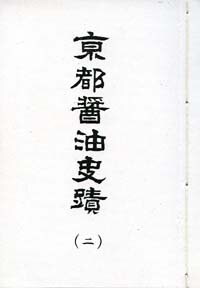 京都醤油史蹟
（二）